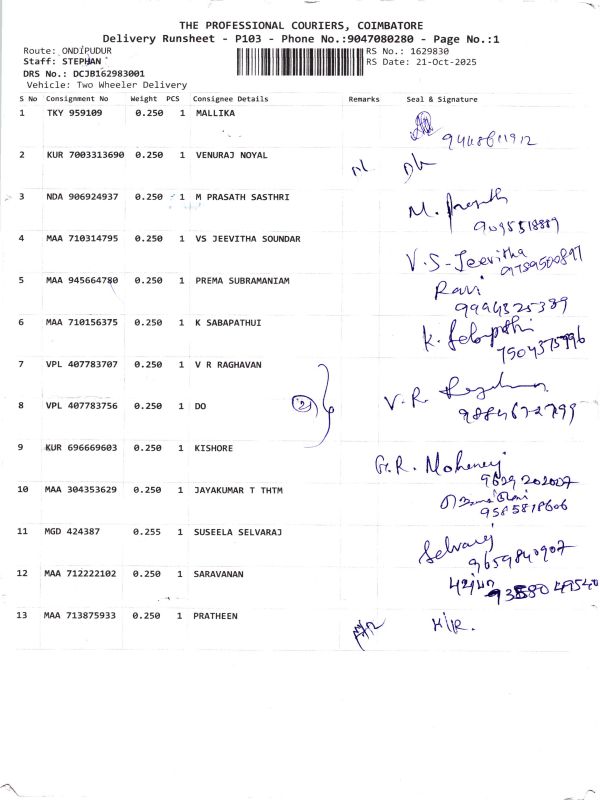 THE PROFESSIONAL COURIERS, COIMBATORE
Delivery Runsheet - P103 - Phone No.:9047080280 - Page No.:1
Route: ONDIPUDUR RS No.: 1629830
Staff: STEPHAN RS Date: 21-Oct-2025
DRS No.: DCJB162983001
Vehicle: Two Wheeler Delivery
S No Consignment No Weight PCS Consignee Details Remarks Seal & Signature
1 TKY 959109 0.250 1 MALLIKA
2 KUR 7003313690 0.250 1 VENURAJ NOYAL
3 NDA 906924937 0.250 1 M PRASATH SASTHRI M. Prasath
4 MAA 710314795 0.250 1 VS JEEVITHA SOUNDAR V.S-Jeevitha
9789500897
5 MAA 945664780 0.250 1 PREMA SUBRAMANIAM Ravi
9994325389
6 MAA 710156375 0.250 1 K SABAPATHUI
7504375996
7 VPL 407783707 0.250 1 V R RAGHAVAN
8 VPL 407783756 0.250 1 DO (2) V.R.
9884672799
9 KUR 696669603 0.250 1 KISHORE G.R.
9629202007
10 MAA 304353629 0.250 1 JAYAKUMAR T THTM
9585818606
11 MGD 424387 0.255 1 SUSEELA SELVARAJ Selvaraj
9659840907
12 MAA 712222102 0.250 1 SARAVANAN
13 MAA 713875933 0.250 1 PRATHEEN